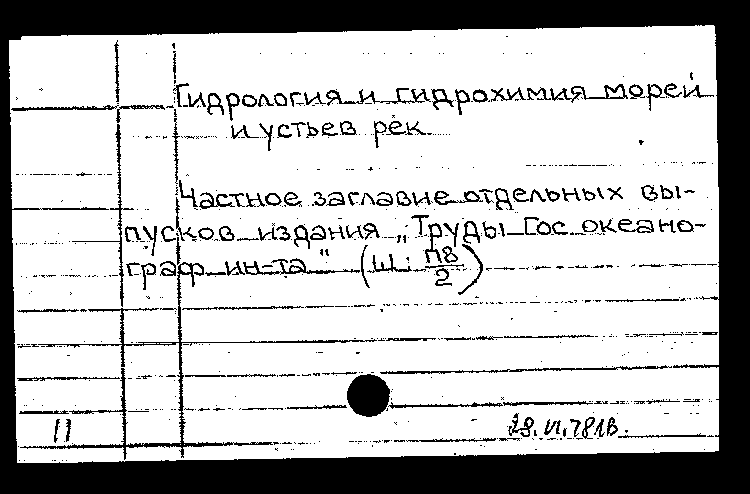 Гидрология и гидрохимия морей
и устьев рек.
Частное заглавие отдельных вы-
пусков издания „Труды Гос океано-
граф ин-та" (Ш: П8/2)
11
29.VI.78